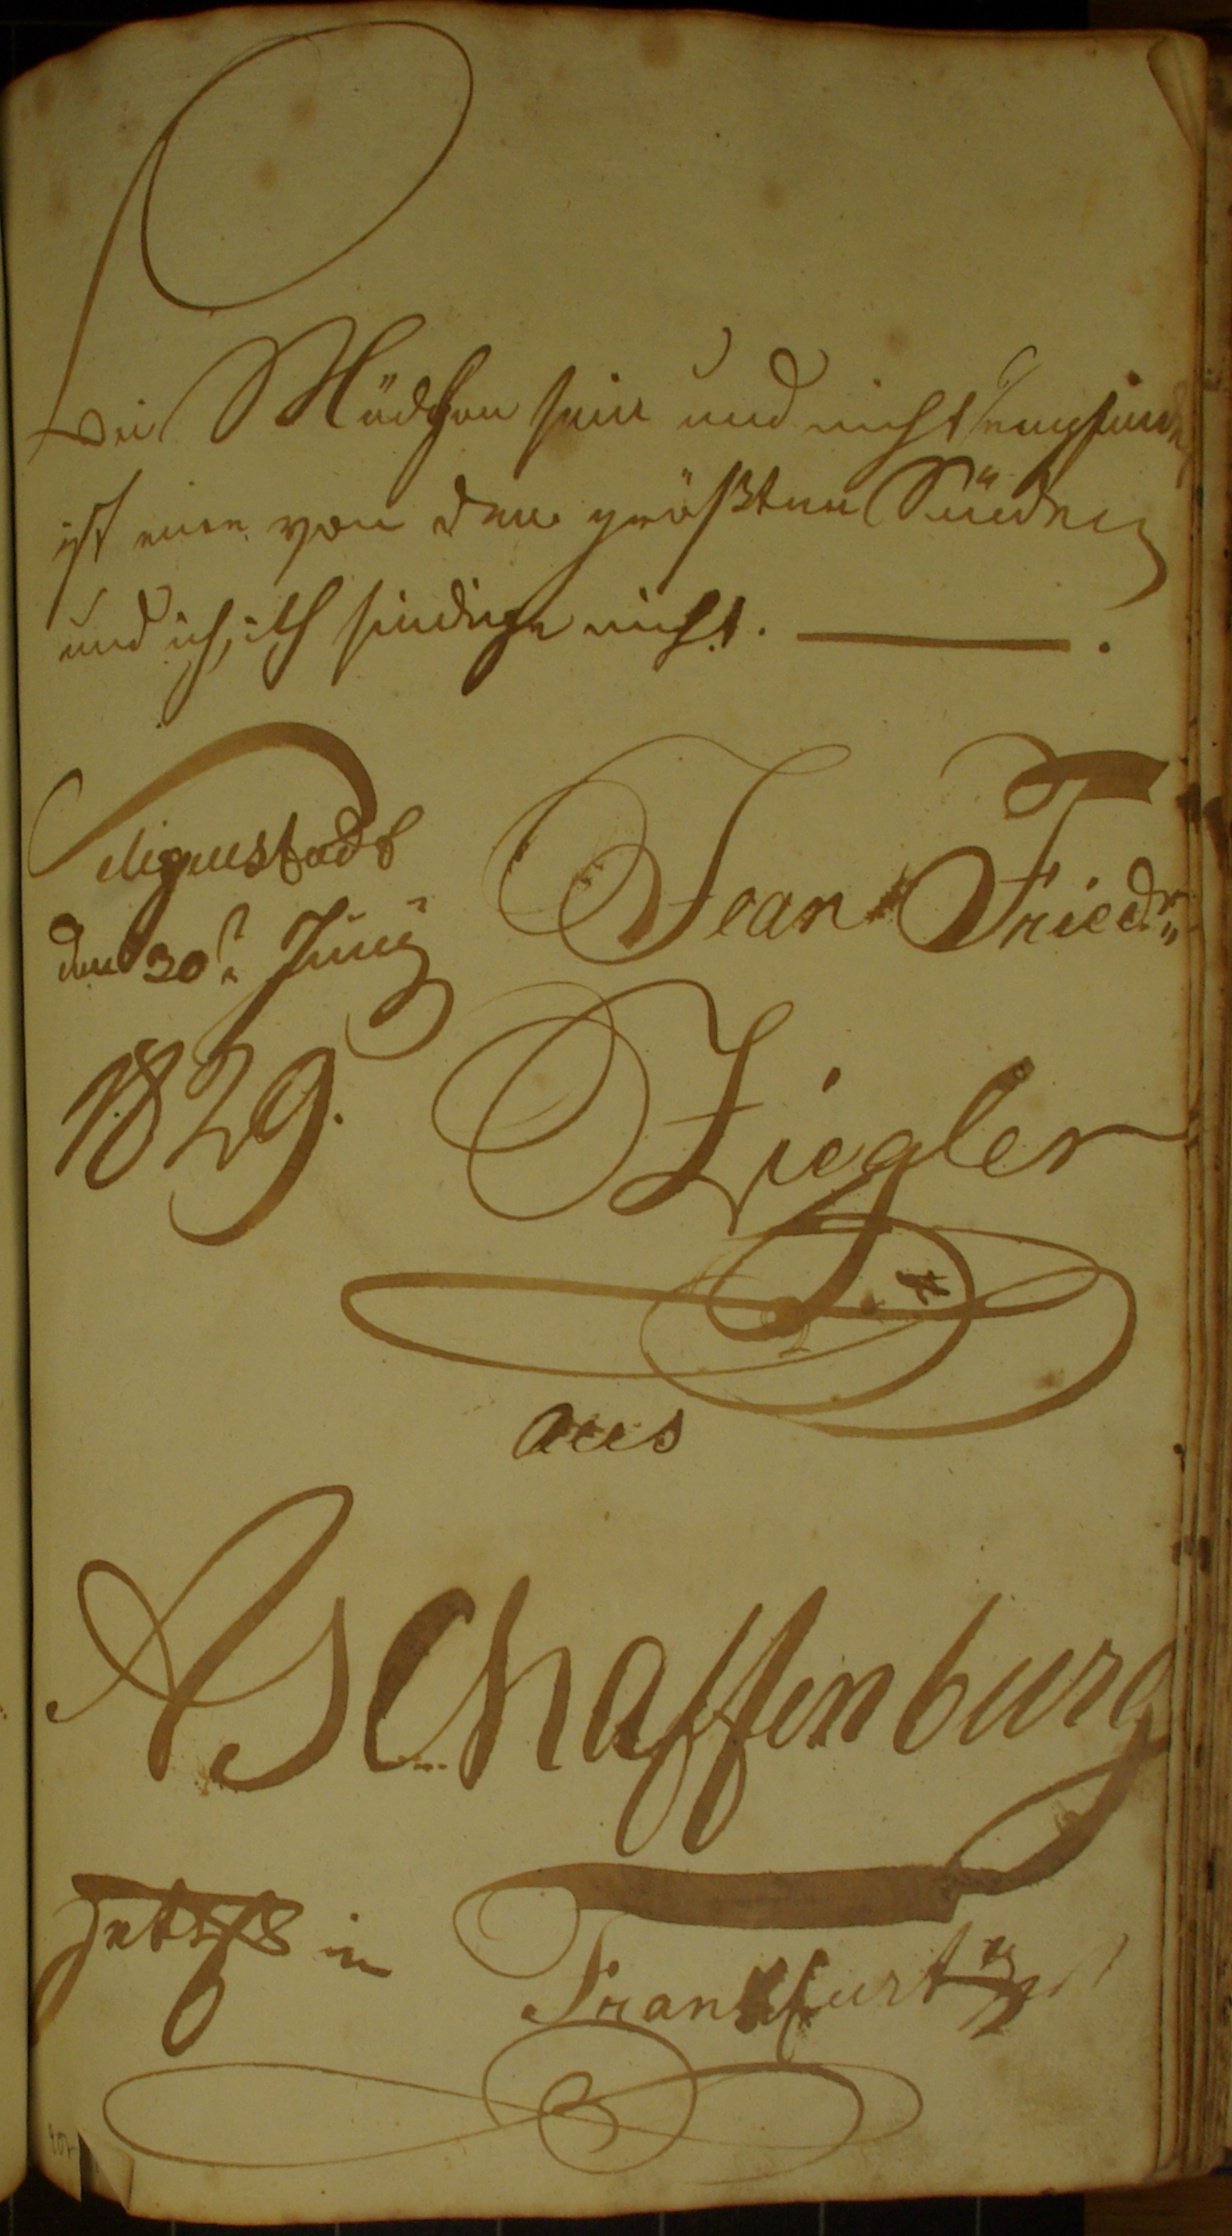 Bei Mädchen sein und nicht empfinden
ist eine von den größten Sünden
und ich, ich sündige nicht.
Seligenstadt
den 30t Juny
1829.
Jean Friedr
Ziegler
aus
Aschaffenburg
in
Frankfurt